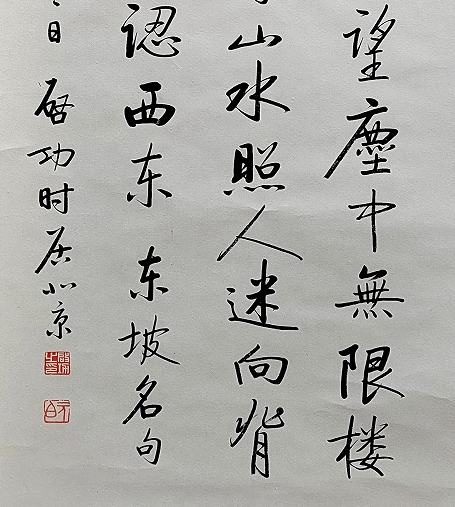 望塵中無限楼
山水照人迷向背
認西东 东坡名句
日 啓功时居北京